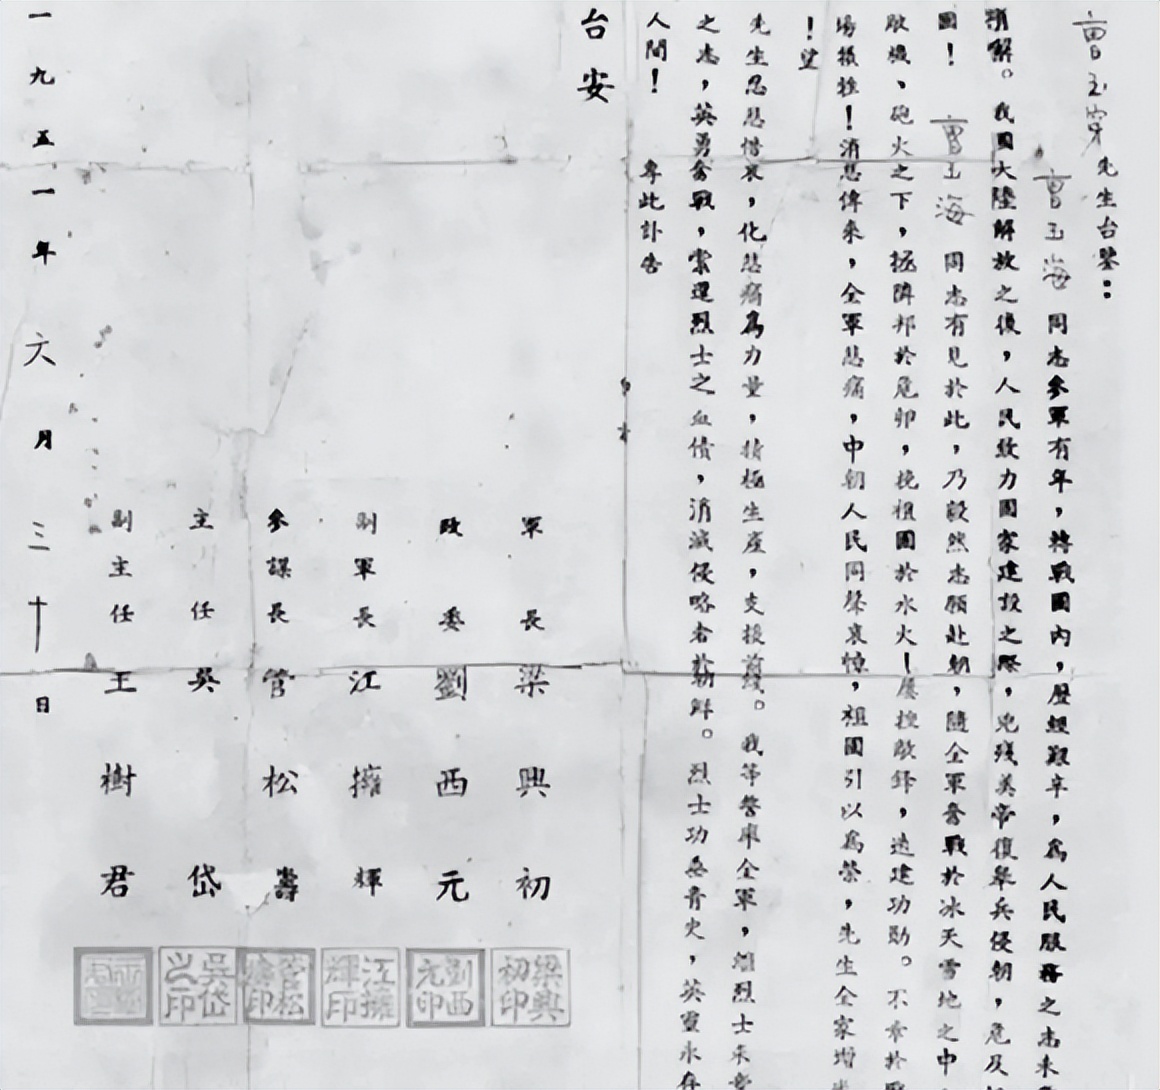 曹玉穿先生台鑒：
曹玉海 同志參軍有年，轉戰國內，歷經艱辛，為人民服務之志未
稍懈。我國大陸解放之後，人民致力國家建設之際，兇殘美帝復舉兵侵朝，危及
國！ 曹玉海 同志有見於此，乃毅然志願赴朝，隨全軍奮戰於冰天雪地之中
敵機、砲火之下，拯隣邦於危卵，挽祖國於水火！屢挫敵鋒，迭建功勛。不幸於
場犧牲！消息傳來，全軍悲痛，中朝人民同聲哀悼，祖國引以為榮，先生全家增
！望
先生忍悲惜哀，化悲痛為力量，積極生產，支援前綫。我等誓率全軍，繼烈士未竟
之志，英勇奮戰，索還烈士之血債，消滅侵略者於朝鮮。烈士功垂青史，英靈永存
人間！ 專此訃告
台安
軍長 梁興初
政委 劉西元
副軍長 江擁輝
參謀長 管松濤
主任 吳岱
副主任 王樹君
梁興初印
劉西元印
江擁輝印
管松濤印
吳岱之印
一九五一年六月三十日